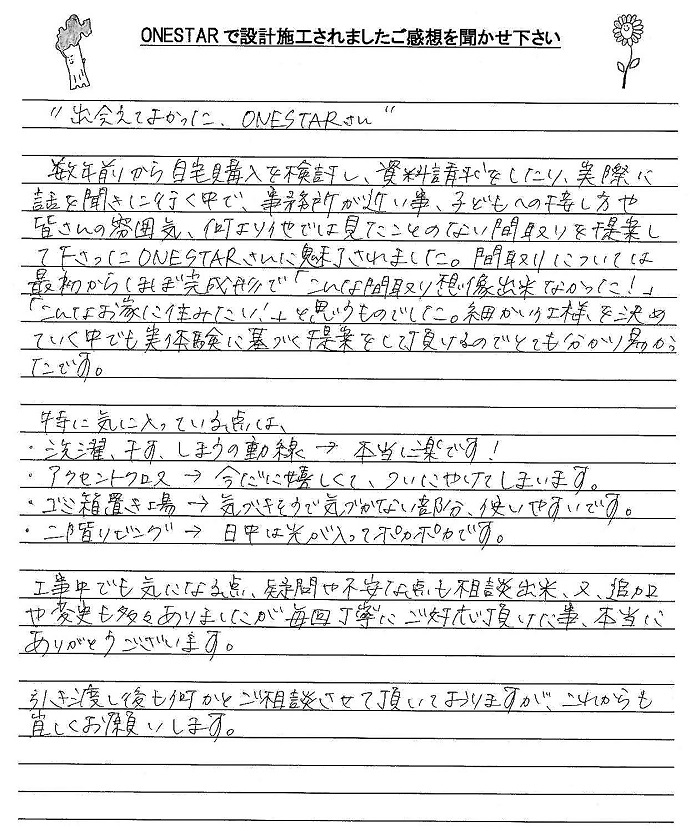 ONESTARで設計施工されましたご感想を聞かせ下さい
"出会えてよかった、ONESTARさん"
数年前から自宅購入を検討し、資料請求をしたり、実際に
話を聞きに行く中で、事務所が近い事、子どもへの接し方や
皆さんの雰囲気、何より他では見たことのない間取りを提案し
て下さったONESTARさんに魅了されました。間取りについては
最初からほぼ完成形で「こんな間取り想像出来なかった!」
「こんなお家に住みたい!」と思うものでした。細かい仕様を決め
ていく中でも実体験に基づく提案をして頂けるのでとても分かり易かっ
たです。
特に気に入っている点は、
・洗濯、干す、しまうの動線→ 本当に楽です!
・アクセントクロス → 今だに嬉しくて、ついにやけてしまいます。
・ゴミ箱置き場 → 気づきそうで気づかない部分、使いやすいです。
・二階リビング → 日中は光が入ってポカポカです。
工事中でも気になる点、疑問や不安な点も相談出来、又、追加
や変更も多々ありましたが毎回丁寧にご対応頂けた事、本当に
ありがとうございます。
引き渡し後も何かとご相談させて頂いておりますが、これからも
宜しくお願いします。